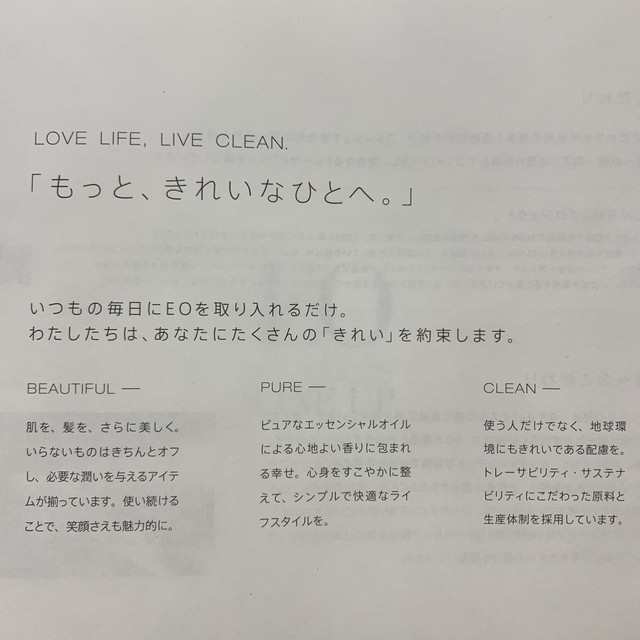 LOVE LIFE, LIVE CLEAN.
「もっと、きれいなひとへ。」
いつもの毎日にEOを取り入れるだけ。
わたしたちは、あなたにたくさんの「きれい」を約束します。
BEAUTIFUL —
肌を、髪を、さらに美しく。
いらないものはきちんとオフ
し、必要な潤いを与えるアイテ
ムが揃っています。使い続ける
ことで、笑顔さえも魅力的に。
PURE —
ピュアなエッセンシャルオイル
による心地よい香りに包まれ
る幸せ。心身をすこやかに整
えて、シンプルで快適なライ
フスタイルを。
CLEAN —
使う人だけでなく、地球環
境にもきれいである配慮を。
トレーサビリティ・サステナ
ビリティにこだわった原料と
生産体制を採用しています。